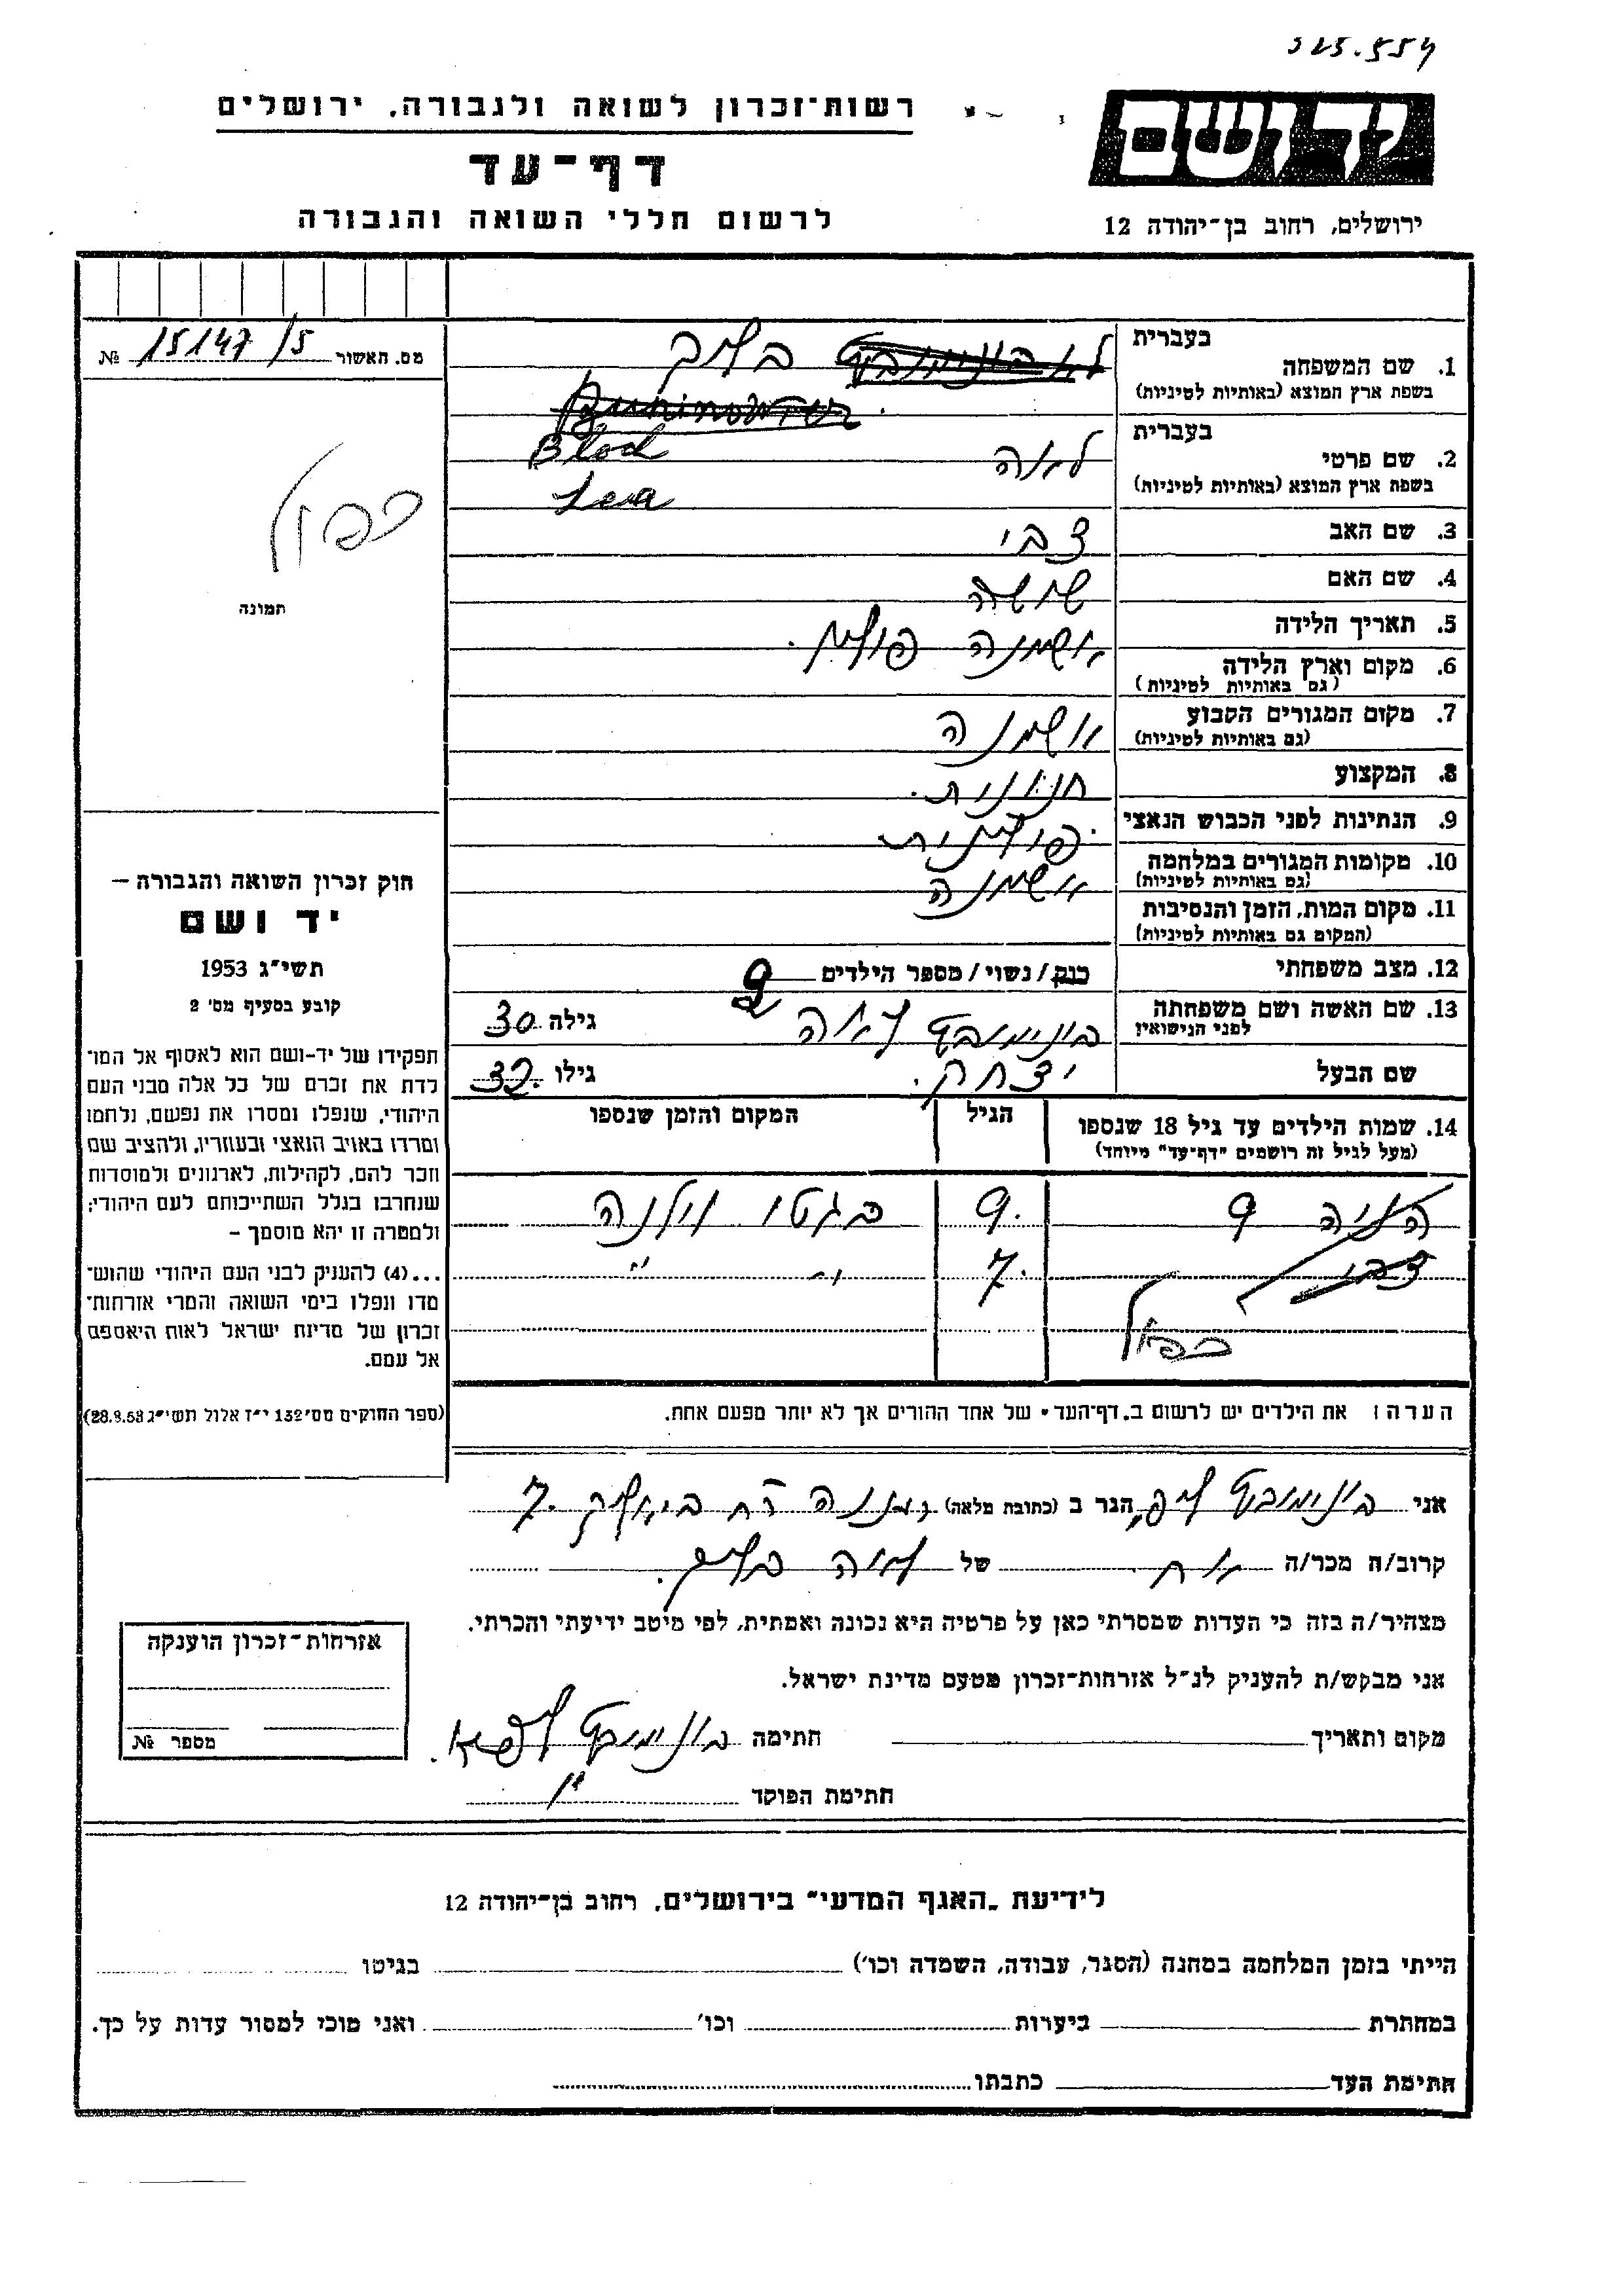 525.554
רשות־זכרון לשואה ולגבורה, ירושלים
יד ושם
דף־עד
לרשום חללי השואה והגבורה
ירושלים, רחוב בן־יהודה 12
מס. האשור 15147/5 №
בעברית
1. שם המשפחה בלוך
בשפת ארץ המוצא (באותיות לטיניות)
Bloch
בעברית
2. שם פרטי לאה
בשפת ארץ המוצא (באותיות לטיניות)
Lea
3. שם האב צבי
4. שם האם
5. תאריך הלידה
6. מקום וארץ הלידה אושמנה פולין.
(גם באותיות לטיניות)
7. מקום המגורים הקבוע אושמנה
(גם באותיות לטיניות)
8. המקצוע חנונית.
9. הנתינות לפני הכבוש הנאצי פולנית
10. מקומות המגורים במלחמה אושמנה
(גם באותיות לטיניות)
11. מקום המות, הזמן והנסיבות
(המקום גם באותיות לטיניות)
12. מצב משפחתי רוק/נשוי/מספר הילדים 2
13. שם האשה ושם משפחתה בונימוביץ לאה גילה 30
לפני הנישואין
שם הבעל יצחק. גילו 32
14. שמות הילדים עד גיל 18 שנספו הגיל המקום והזמן שנספו
(מעל לגיל זה רושמים "דף־עד" מיוחד)
9 9. בגטו וילנה
צבי 7. " "
כפול
הערה: את הילדים יש לרשום ב„דף־העד" של אחד ההורים אך לא יותר מפעם אחת.
כפול
תמונה
חוק זכרון השואה והגבורה —
יד ושם
תשי"ג 1953
קובע בסעיף מס' 2
תפקידו של יד-ושם הוא לאסוף אל המו־
לדת את זכרם של כל אלה מבני העם
היהודי, שנפלו ומסרו את נפשם, נלחמו
ומרדו באויב הנאצי ובעוזריו, ולהציב שם
וזכר להם, לקהילות, לארגונים ולמוסדות
שנחרבו בגלל השתייכותם לעם היהודי;
ולמטרה זו יהא מוסמך —
...(4) להעניק לבני העם היהודי שהוש־
מדו ונפלו בימי השואה והמרי אזרחות־
זכרון של מדינת ישראל לאות היאספם
אל עמם.
(ספר החוקים מס' 132 י"ז אלול תשי"ג 28.8.53)
אני בונימוביץ הגר ב (כתובת מלאה) רעננה רח ביאליק 7.
קרוב/ה מכר/ה אח של לאה בלוך.
מצהיר/ה בזה כי העדות שמסרתי כאן על פרטיה היא נכונה ואמתית, לפי מיטב ידיעתי והכרתי.
אני מבקש/ת להעניק לנ"ל אזרחות־זכרון מטעם מדינת ישראל.
מקום ותאריך חתימה בונימוביץ
חתימת הפוקד
אזרחות־זכרון הוענקה
מספר №
לידיעת „האגף המדעי" בירושלים, רחוב בן־יהודה 12
הייתי בזמן המלחמה במחנה (הסגר, עבודה, השמדה וכו') בגיטו
במחתרת ביערות וכו' ואני מוכן למסור עדות על כך.
חתימת העד כתבתו